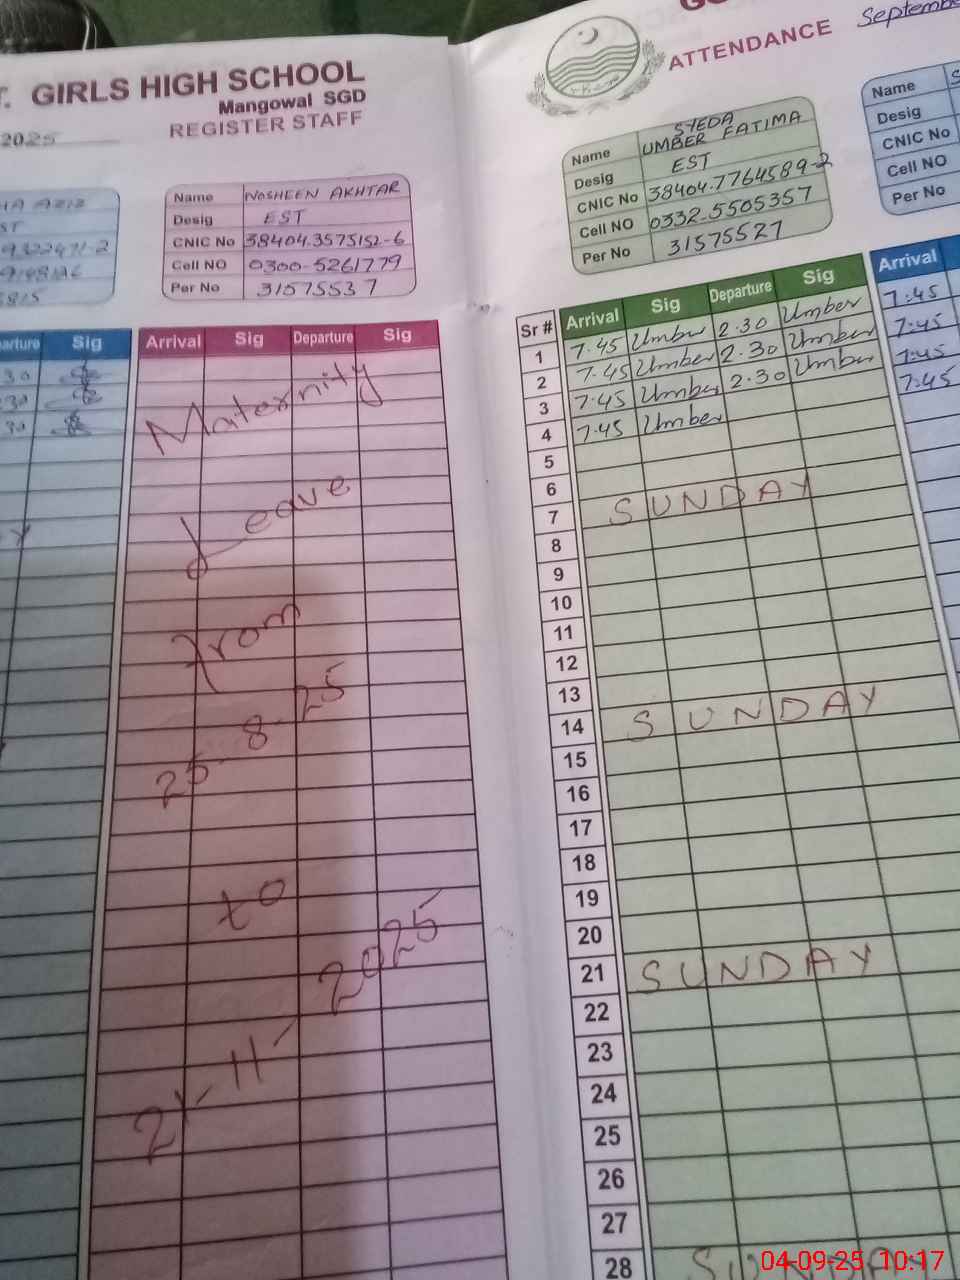 T. GIRLS HIGH SCHOOL
Mangowal SGD
REGISTER STAFF
2025
HA AZIZ
ST
Name NOSHEEN AKHTAR
Desig EST
CNIC No 38404.3575152-6
Cell NO 0300-5261779
Per No 31575537
arture Sig
30
30
30
Arrival Sig Departure Sig
Maternity
Leave
From
25-8-25
to
21-11-2025
ATTENDANCE
Septemb
Name SYEDA
UMBER FATIMA
Desig EST
CNIC No 38404.7764589-2
Cell NO 0332-5505357
Per No 31575527
Name S
Desig
CNIC No
Cell NO
Per No
Sr # Arrival Sig Departure Sig
1 7.45 Umber 2.30 Umber
2 7.45 Umber 2.30 Umber
3 7.45 Umber 2.30 Umber
4 7.45 Umber
5
6
7 SUNDAY
8
9
10
11
12
13
14 SUNDAY
15
16
17
18
19
20
21 SUNDAY
22
23
24
25
26
27
28 SUNDAY
Arrival
7:45
7:45
7:45
7:45
04-09-25 10:17